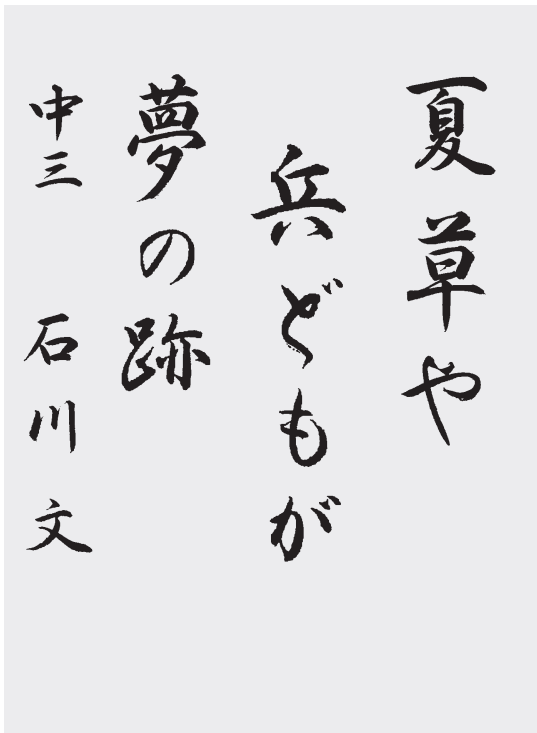 夏草や
兵どもが
夢の跡
中三 石川文